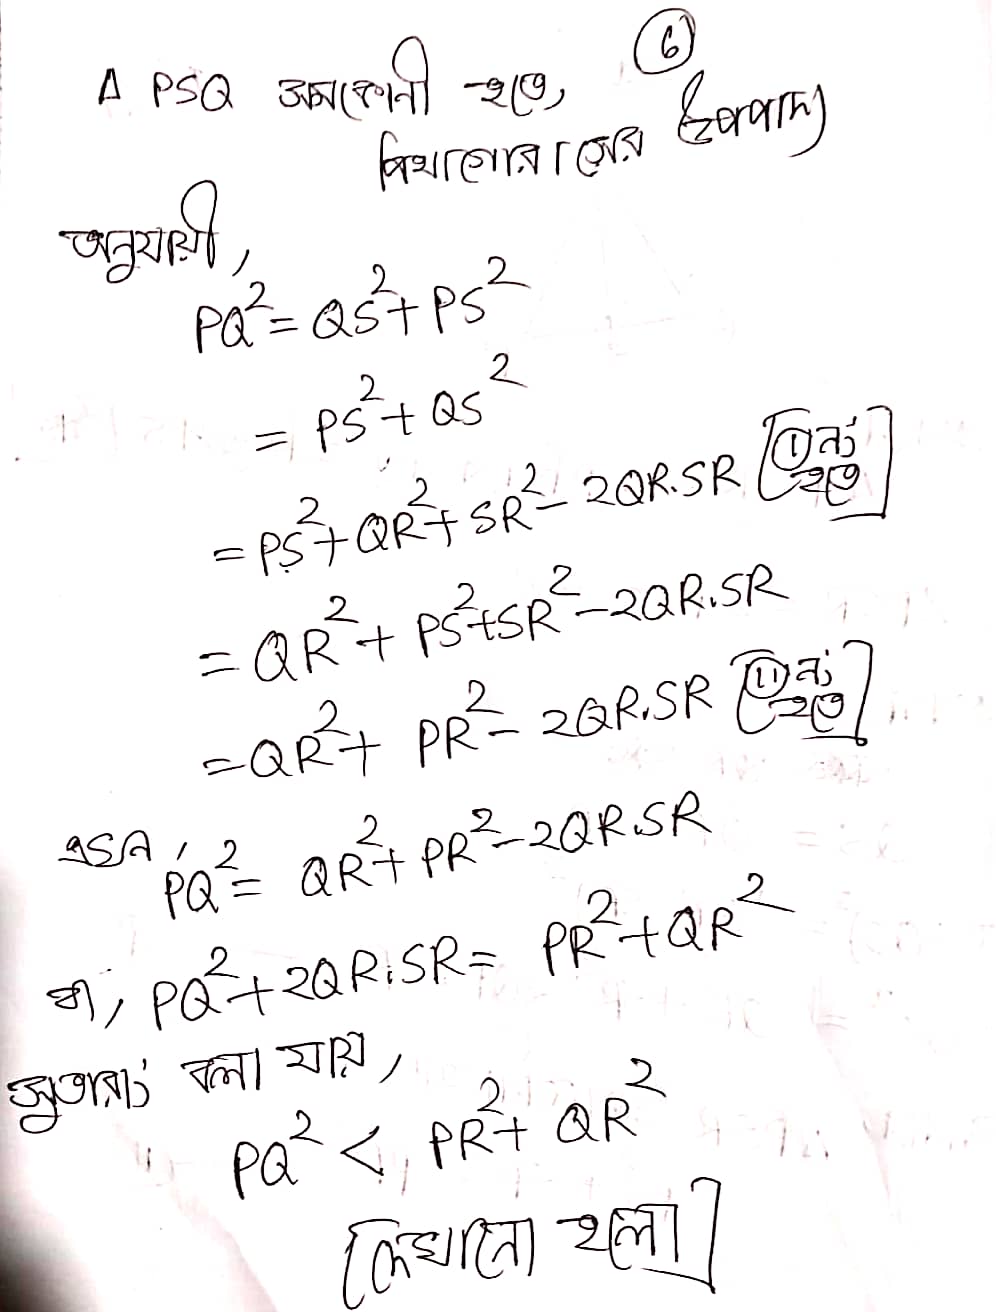 6
Δ PSQ সমকোনী হতে,
পিথাগোরাসের উপপাদ্য
অনুযায়ী,
PQ² = QS² + PS²
= PS² + QS²
= PS² + QR² + SR² - 2QR.SR [① নং হতে]
= QR² + PS² + SR² - 2QR.SR
= QR² + PR² - 2QR.SR [⑪ নং হতে]
PQ² = QR² + PR² - 2QR.SR
বা, PQ² + 2QR.SR = PR² + QR²
সুতরাং বলা যায়,
PQ² < PR² + QR²
[দেখানো হলো]